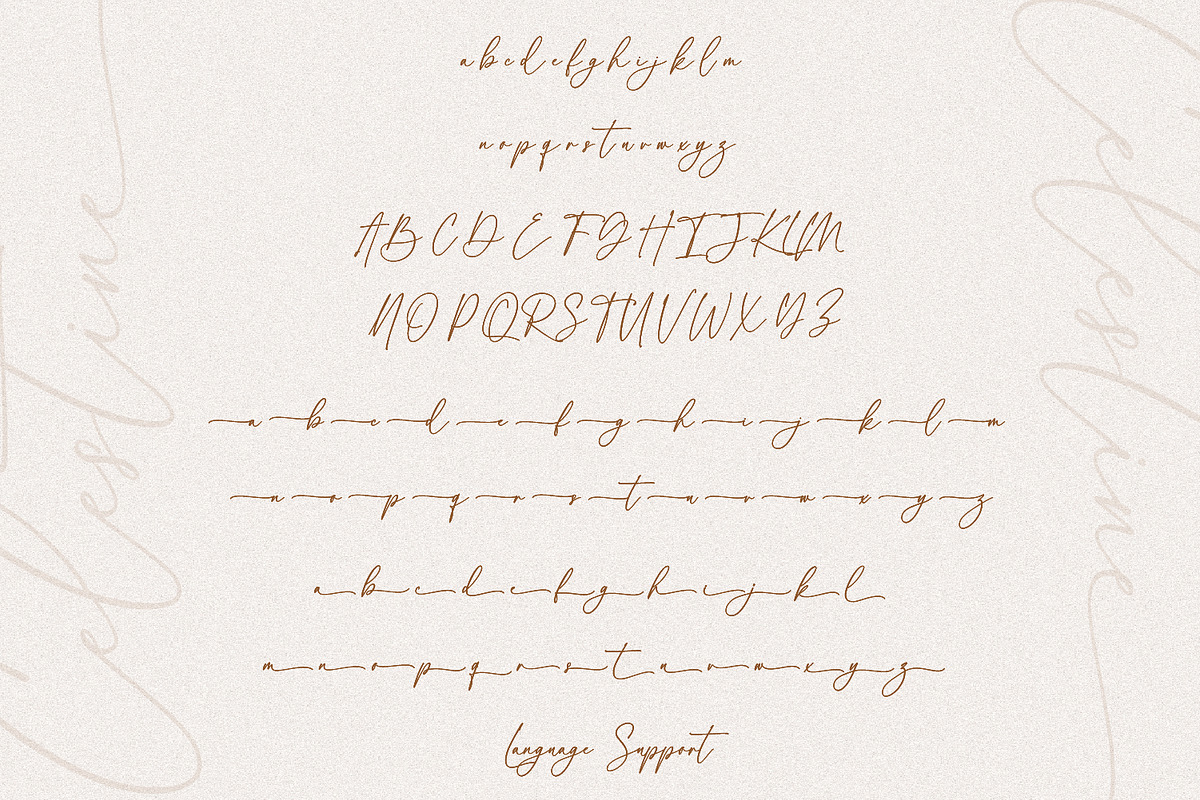 a b c d e f g h i j k l m
n o p q r s t u v w x y z
A B C D E F G H I J K L M
N O P Q R S T U V W X Y Z
a b c d e f g h i j k l m
n o p q r s t u v w x y z
a b c d e f g h i j k l
m n o p q r s t u v w x y z
Language Support
Celestine
Celestine